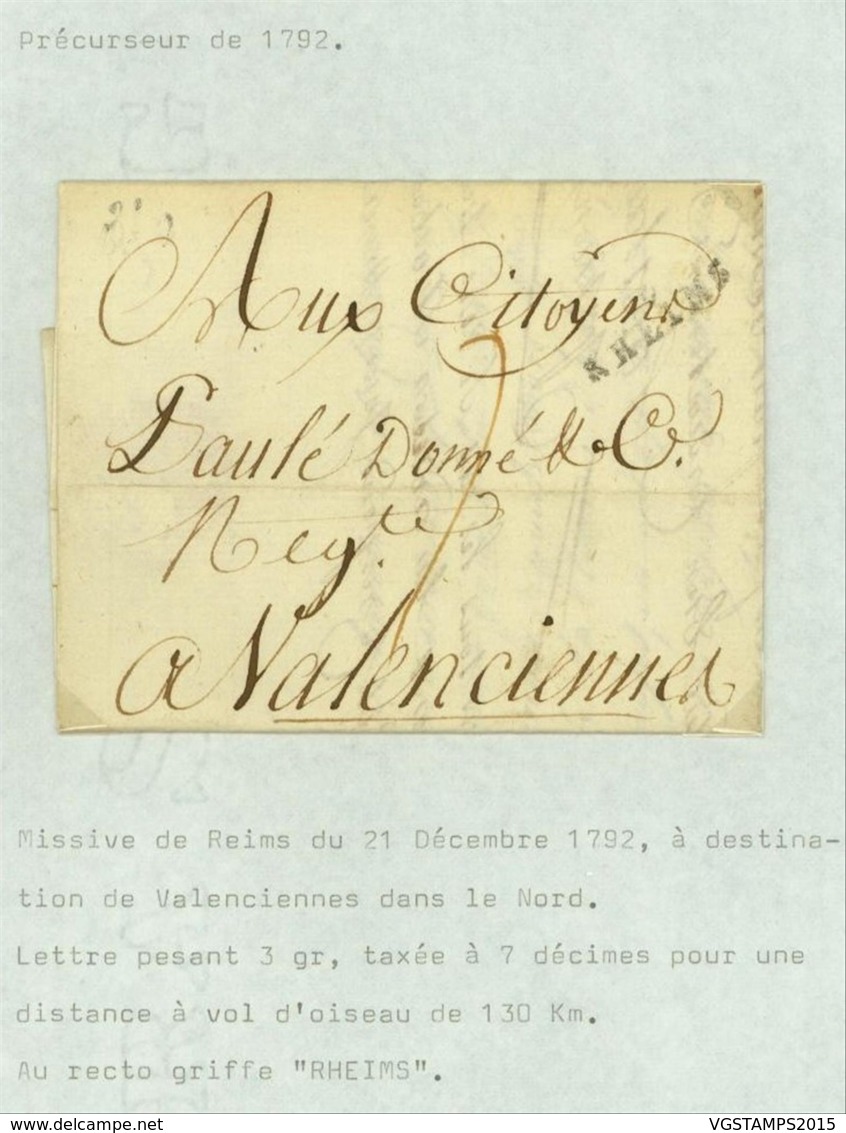 Précurseur de 1792.
Aux Citoyens
RHEIMS
Paulé Donné & C.
Negt.
7
a Valenciennes
Missive de Reims du 21 Décembre 1792, à destina-
tion de Valenciennes dans le Nord.
Lettre pesant 3 gr, taxée à 7 décimes pour une
distance à vol d'oiseau de 130 Km.
Au recto griffe "RHEIMS".
www.delcampe.net
VGSTAMPS2015